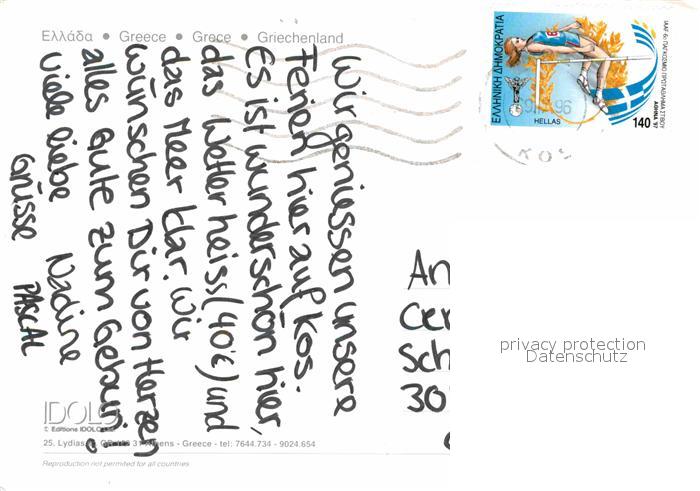 Ελλάδα • Greece • Grece • Griechenland
Wir geniessen unsere
Ferien hier auf Kos.
Es ist wunderschön hier,
das Wetter heiss (40°C) und
das Meer klar. Wir
wünschen Dir von Herzen
alles Gute zum Geburi!
Viele liebe Nadine
Grüsse PASCAL
IDOLO
© Editions IDOLO
25, Lydias 31 Athens - Greece - tel: 7644.734 - 9024.654
Reproduction not permitted for all countries
ΕΛΛΗΝΙΚΗ ΔΗΜΟΚΡΑΤΙΑ
IAAF 6ο ΠΑΓΚΟΣΜΙΟ ΠΡΩΤΑΘΛΗΜΑ ΣΤΙΒΟΥ
ΑΘΗΝΑ '97
HELLAS
140
96
An
Cer
Sch
30
privacy protection
Datenschutz